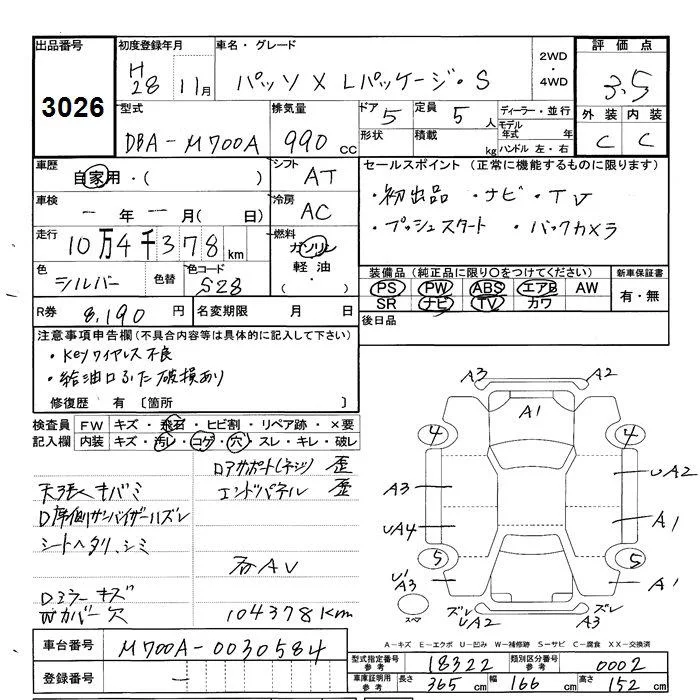 出品番号 初度登録年月 車名・グレード 2WD・4WD 評価点
3026 H28 11月 パッソ X Lパッケージ・S 3.5
型式 排気量 ドア 5 定員 5人 ディーラー・並行 外装 内装
DBA-M700A 990cc 形状 積載 kg モデル年式 年 ハンドル 左・右 C C
車歴 自家用・( ) シフト AT セールスポイント (正常に機能するものに限ります)
車検 ー年ー月(日) 冷房 AC ・初出品 ・ナビ・TV
走行 10万4千378km 燃料 ガソリン 軽油・( ) ・プッシュスタート ・バックカメラ
色 シルバー 色替 色コード S28 装備品 (純正品に限り○をつけてください) 新車保証書
PS PW ABS エアB AW 有・無
SR ナビ TV カワ
R券 8,190円 名変期限 月 日 後日品
注意事項申告欄 (不具合内容等は具体的に記入して下さい)
・Keyワイヤレス不良
・給油口ふた破損あり
修復歴 有〔箇所 〕
検査員記入欄 FW キズ・飛石・ヒビ割・リペア跡・×要
内装 キズ・汚レ・コゲ・穴・スレ・キレ・破レ
ロアサポート(ネジ) 歪
天張リキバミ エンドパネル 歪
D席側サンバイザーハズレ
シートヘタリ、シミ
各AV
Dミラーキズ
Wカバー欠 104378Km
A3 A2
A1
4 4
A3 UA2
UA4 A1
5 5
U1 A3 A1
スペア
ズレ UA2 ズレ A3
A-キズ E-エクボ U-凹み W-補修跡 S-サビ C-腐食 XX-交換済
車台番号 M700A-0030584
登録番号 ー
型式指定番号 参考 18322 類別区分番号 参考 0002
車庫証明用 参考 長さ 365cm 幅 166cm 高さ 152cm